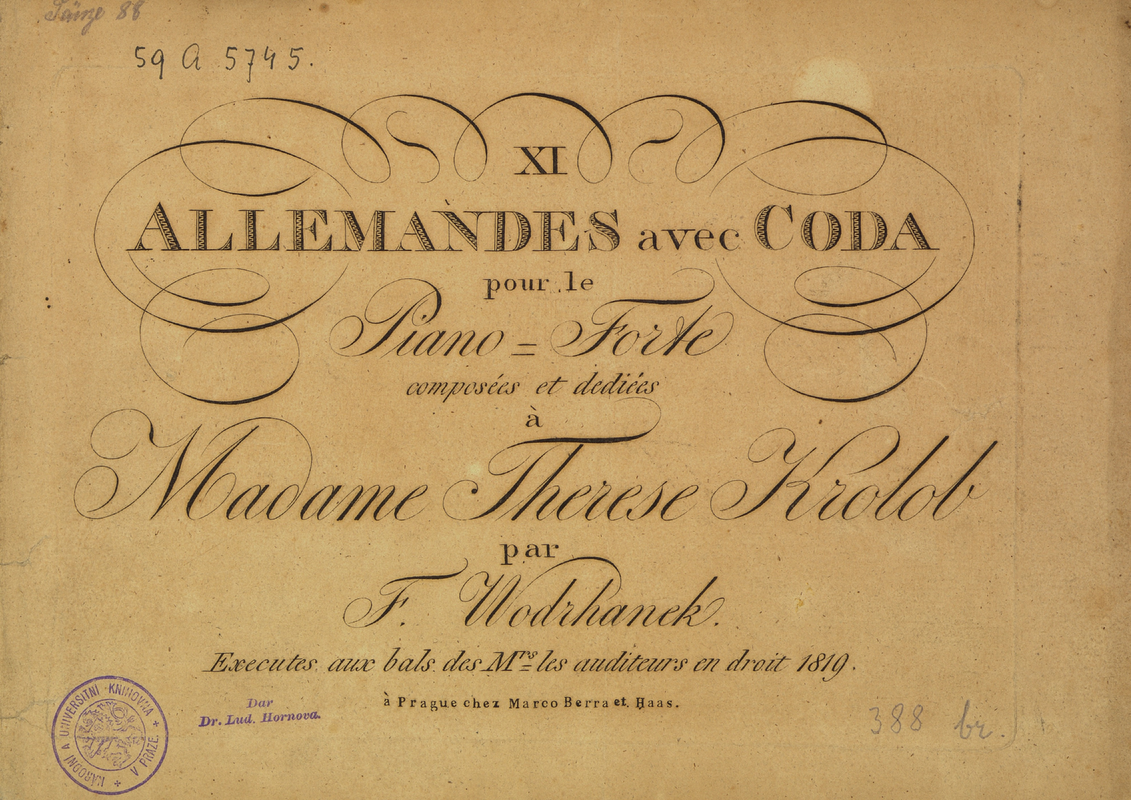 Tänze 88
59 A 5745.
XI
ALLEMANDES avec CODA
pour le
Piano = Forte
composées et dediées
à
Madame Therese Krolob
par
F. Wodrhanek.
Executes aux bals des Mrs les auditeurs en droit 1819.
à Prague chez Marco Berra et Haas.
Dar
Dr. Lud. Hornova.
NÁRODNÍ A UNIVERSITNÍ KNIHOVNA V PRAZE
388 br.